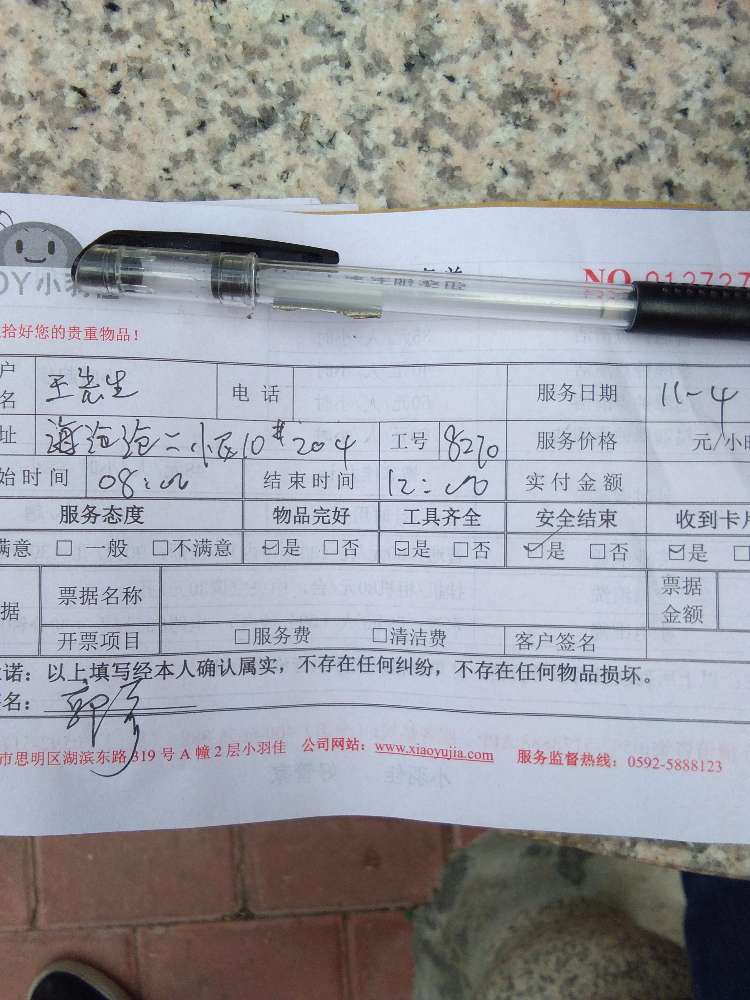 OY小羽佳
NO 0127327
拾好您的贵重物品！
户名 王先生 电话 服务日期 11-4
址 海沧沧二小区10#204 工号 8270 服务价格 元/小时
始时间 08:00 结束时间 12:00 实付金额
服务态度 物品完好 工具齐全 安全结束 收到卡片
满意 □一般 □不满意 ☑是 □否 ☑是 □否 ☑是 □否 ☑是 □
据 票据名称 票据金额
开票项目 □服务费 □清洁费 客户签名
诺：以上填写经本人确认属实，不存在任何纠纷，不存在任何物品损坏。
名：
市思明区湖滨东路319号A幢2层小羽佳 公司网站：www.xiaoyujia.com 服务监督热线：0592-5888123